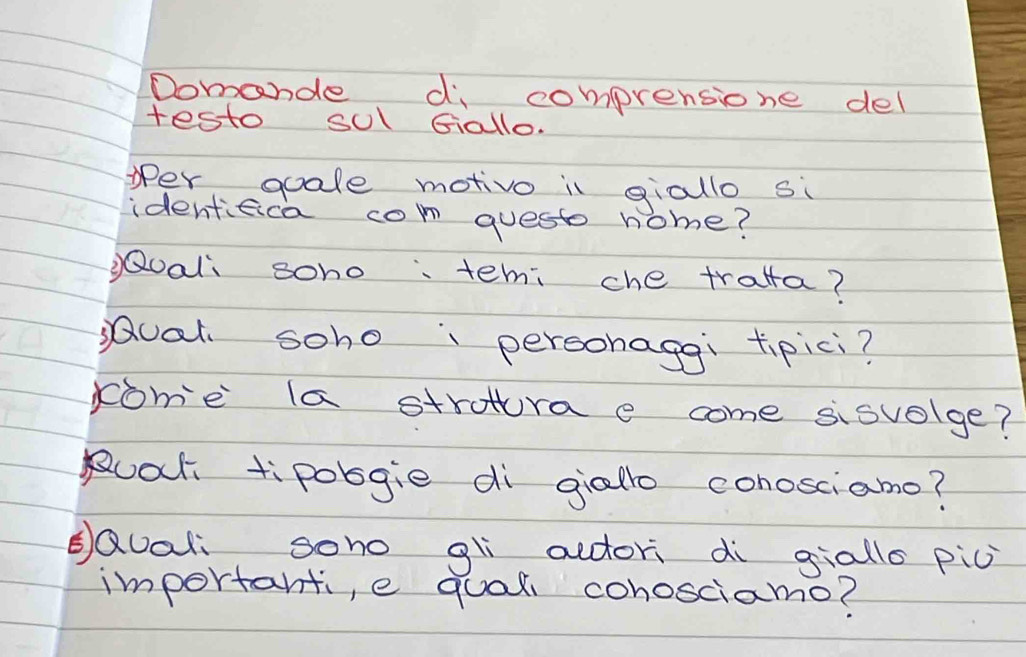 Domande di comprensione del
testo sul Giallo.
1)Per quale motivo il giallo si
identifica com questo nome?
2)Quali sono i temi che tratta?
3)Quali sono i personaggi tipici?
com'è la strottura e come si svolge?
Quali tipologie di giallo conosciamo?
6)Quali sono gli autori di giallo più
importanti, e quali conosciamo?